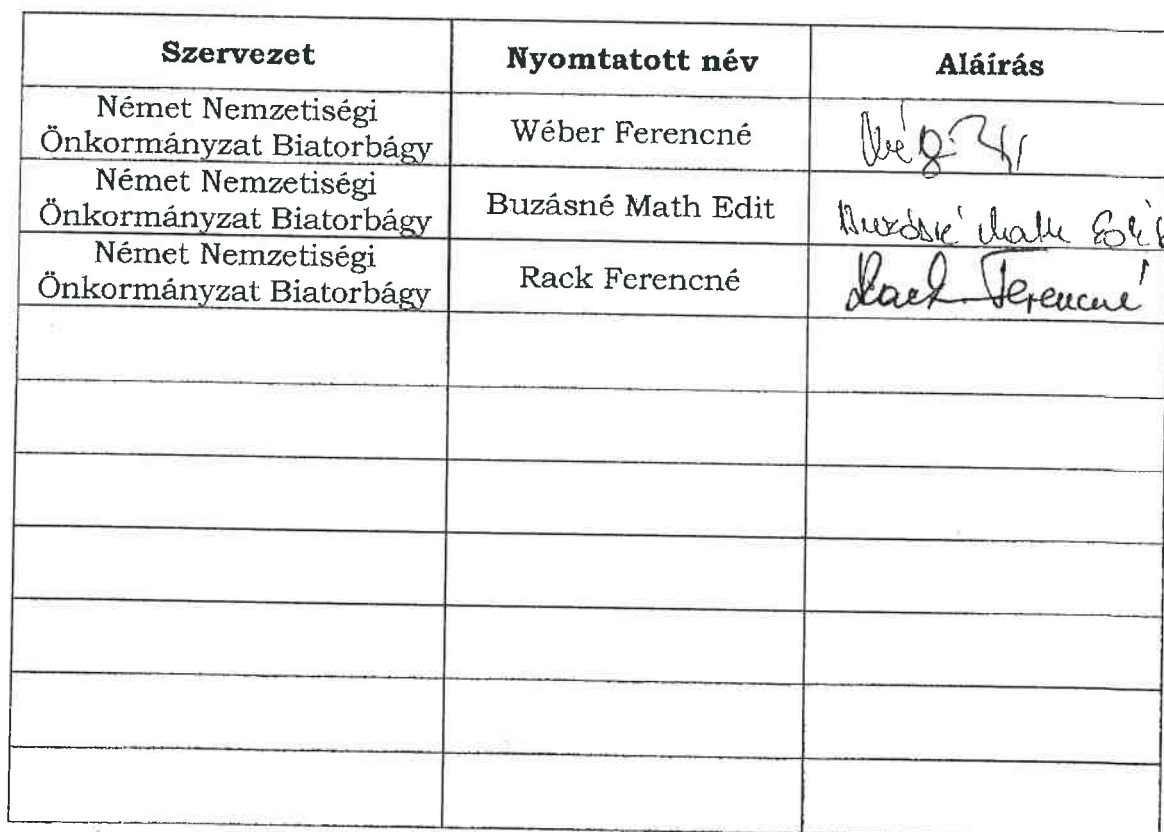 Szervezet Nyomtatott név Aláírás
Német Nemzetiségi
Önkormányzat Biatorbágy Wéber Ferencné
Német Nemzetiségi
Önkormányzat Biatorbágy Buzásné Math Edit Buzásné Math Edit
Német Nemzetiségi
Önkormányzat Biatorbágy Rack Ferencné Rack Ferencné